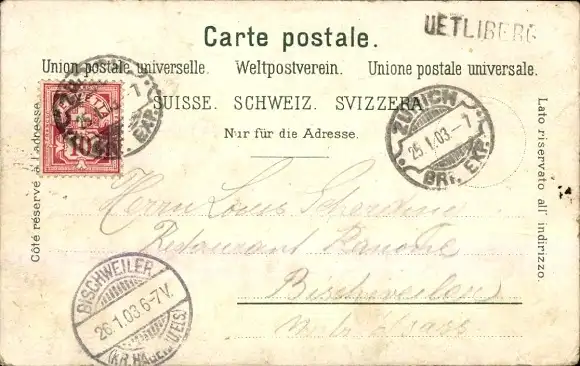 UETLIBERG
Carte postale.
Union postale universelle. Weltpostverein. Unione postale universale.
SUISSE. SCHWEIZ. SVIZZERA
Nur für die Adresse.
Côté réservé à l'adresse.
Lato riservato all' indirizzo.
10
BRF. EXP.
ZÜRICH
25.1.03–7
BRF. EXP.
Herrn Louis
Restaurant
Bischweiler
Elsass
BISCHWEILER
26.1.03 6-7V.
(KR. HAGENAU ELS)